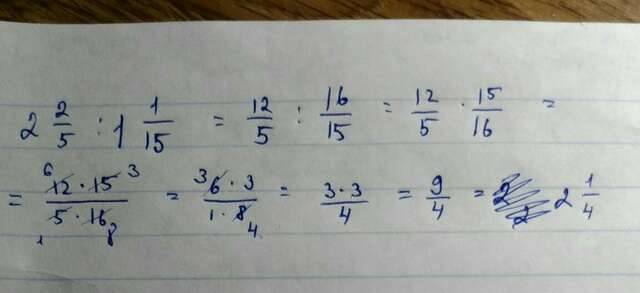 2 2/5 : 1 1/15 = 12/5 : 16/15 = 12/5 · 15/16 =
= (6 12 · 15 3)/(1 5 · 16 8) = (3 6 · 3)/(1 · 8 4) = 3·3/4 = 9/4 = 2 1/4